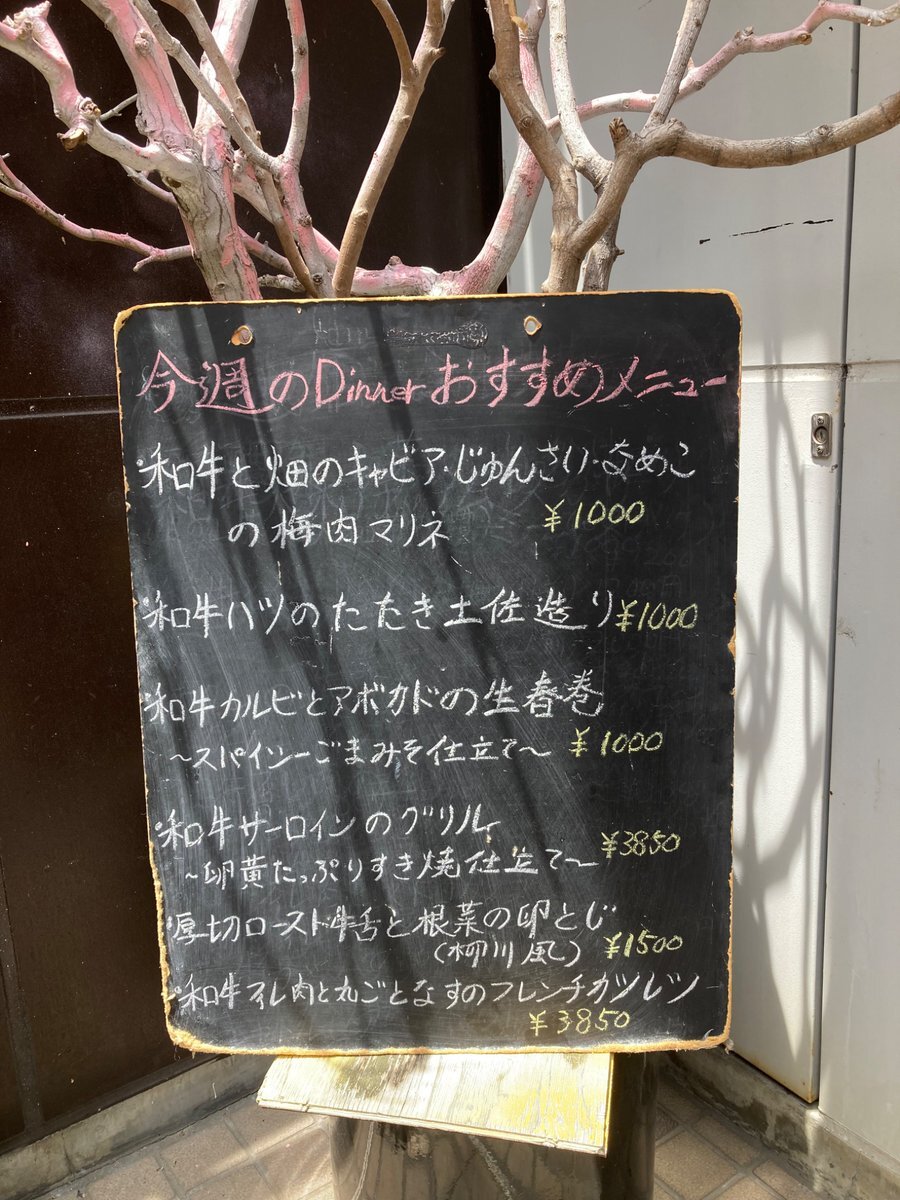 今週のDinnerおすすめメニュー
・和牛と畑のキャビア・じゅんさい・なめこ
の梅肉マリネ ¥1000
・和牛ハツのたたき土佐造り ¥1000
・和牛カルビとアボカドの生春巻
〜スパイシーごまみそ仕立て〜 ¥1000
・和牛サーロインのグリル
〜卵黄たっぷりすき焼仕立て〜 ¥3850
・厚切ロースト牛舌と根菜の卵とじ
(柳川風) ¥1500
・和牛ヒレ肉と丸ごとなすのフレンチカツレツ
¥3850